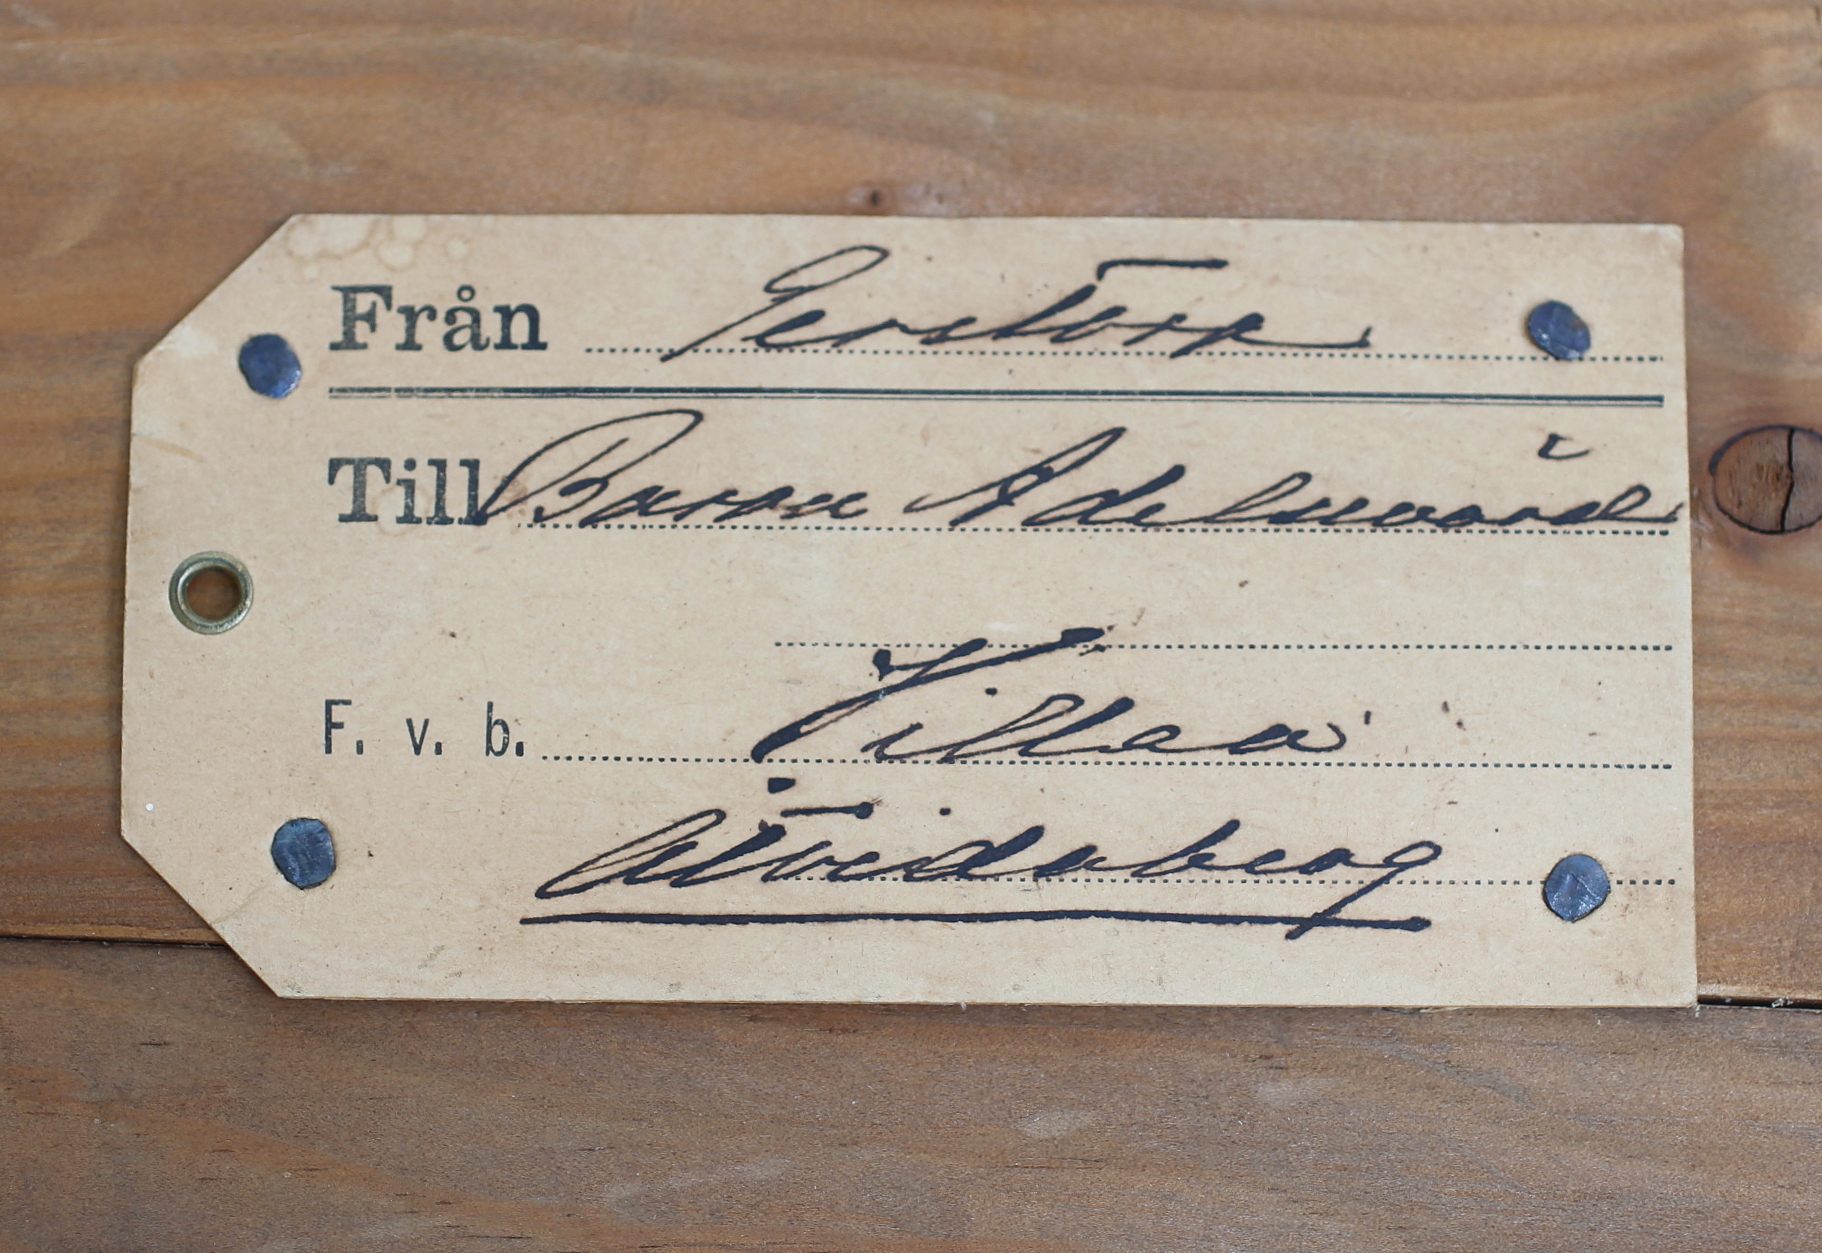 Från Gerstorp
Till Baron Adelswärd
F. v. b. Villan
Åtvidaberg